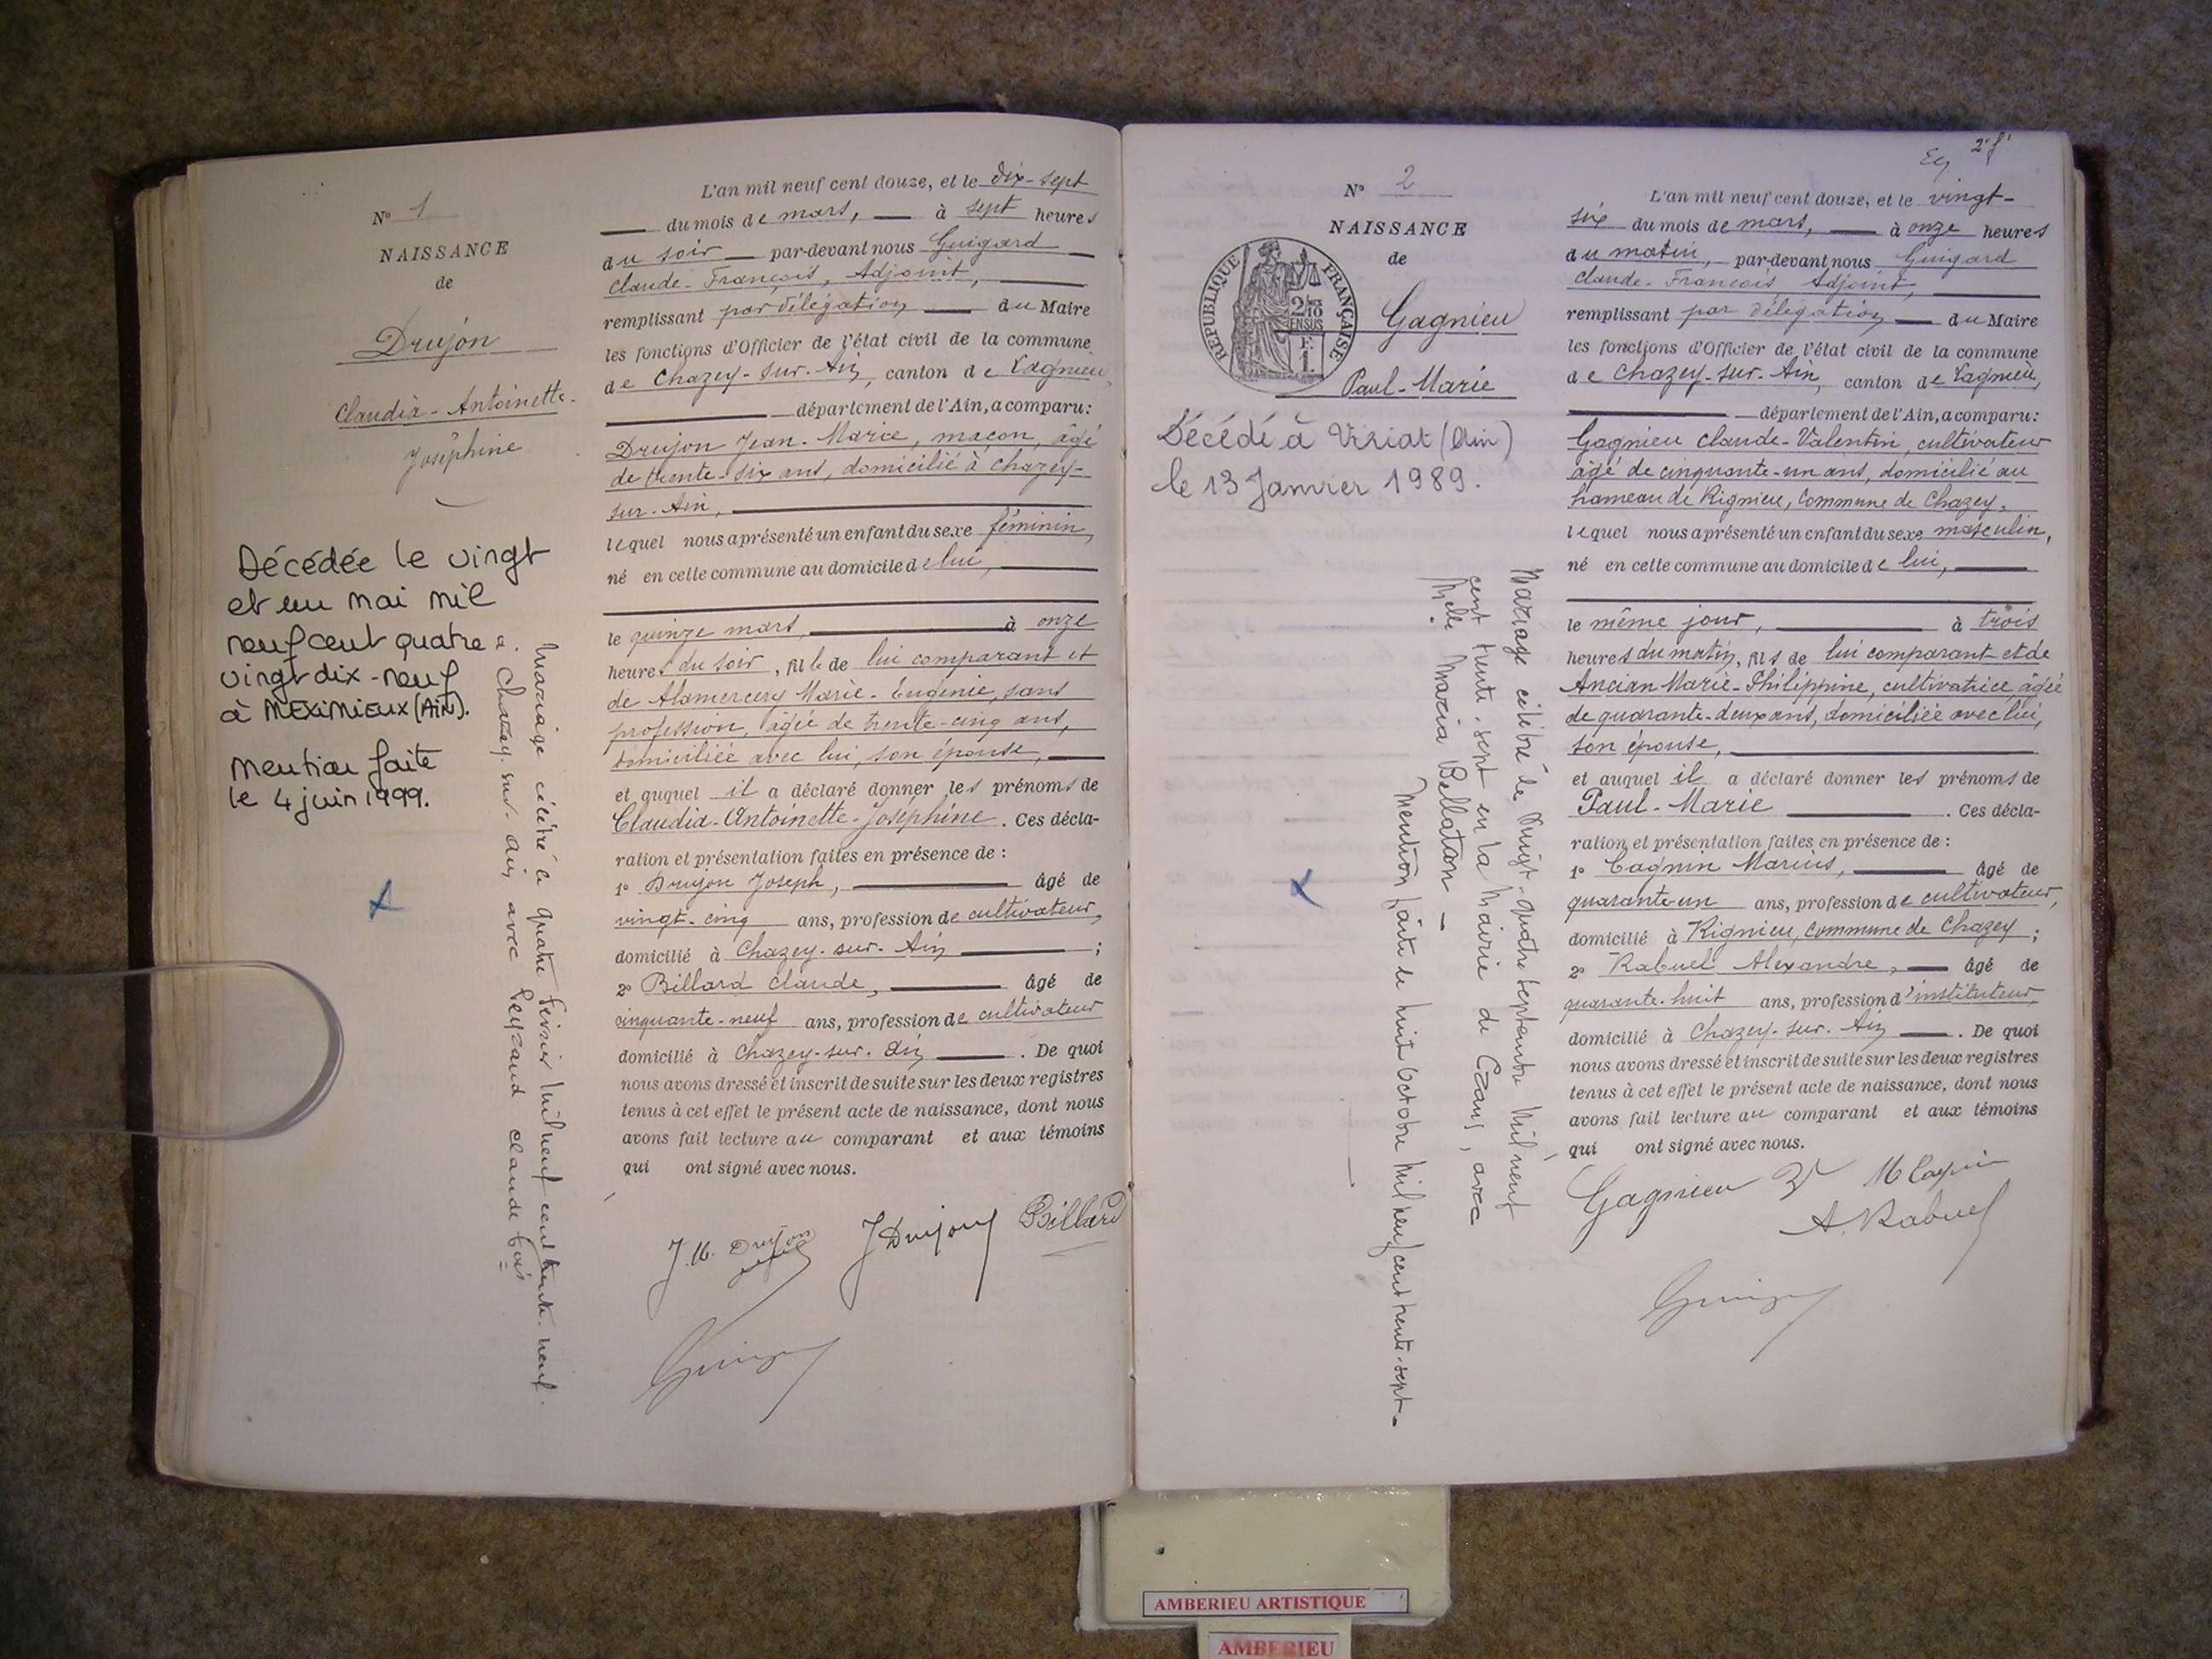 N° 1
NAISSANCE
de
Drujon
Claudia-Antoinette-
Joséphine
Décédée le vingt
et un mai mil
neuf cent quatre
vingt dix-neuf
à MEXIMIEUX (AIN).
Mention faite
le 4 juin 1999.
Mariage célébré le quatre février mil neuf cent trente-neuf
à Chazey-sur-Ain avec Peyzaud Claude
L'an mil neuf cent douze, et le dix-sept
du mois de mars, à sept heures
du soir par-devant nous Guigard
Claude-François, Adjoint,
remplissant par délégation du Maire
les fonctions d'Officier de l'état civil de la commune
de Chazey-sur-Ain, canton de Lagnieu,
département de l'Ain, a comparu:
Drujon Jean-Marie, maçon, âgé
de trente-six ans, domicilié à Chazey-
sur-Ain,
lequel nous a présenté un enfant du sexe féminin,
né en cette commune au domicile de lui,
le quinze mars, à onze
heures du soir, fille de lui comparant et
de Alamercery Marie-Eugénie, sans
profession, âgée de trente-cinq ans,
domiciliée avec lui, son épouse,
et auquel il a déclaré donner les prénoms de
Claudia-Antoinette-Joséphine. Ces décla-
ration et présentation faites en présence de :
1° Drujon Joseph, âgé de
vingt-cinq ans, profession de cultivateur,
domicilié à Chazey-sur-Ain ;
2° Billard Claude, âgé de
cinquante-neuf ans, profession de cultivateur
domicilié à Chazey-sur-Ain. De quoi
nous avons dressé et inscrit de suite sur les deux registres
tenus à cet effet le présent acte de naissance, dont nous
avons fait lecture au comparant et aux témoins
qui ont signé avec nous.
J.M. Drujon J Drujon Billard
N° 2
NAISSANCE
de
RÉPUBLIQUE FRANÇAISE
2/10
EN SUS
F.
1.
Gagnieu
Paul-Marie
Décédé à Viriat (Ain)
le 13 Janvier 1989.
Mariage célébré le vingt-quatre septembre mil neuf
cent trente-sept en la Mairie de Crans, avec
Melle Maria Bellaton -
Mention faite le huit Octobre mil neuf cent trente-sept-
2e f
L'an mil neuf cent douze, et le vingt-
six du mois de mars, à onze heures
du matin, par-devant nous Guigard
Claude-François, Adjoint,
remplissant par délégation du Maire
les fonctions d'Officier de l'état civil de la commune
de Chazey-sur-Ain, canton de Lagnieu,
département de l'Ain, a comparu:
Gagnieu Claude-Valentin, cultivateur
âgé de cinquante-un ans, domicilié au
hameau de Rignieu, Commune de Chazey.
lequel nous a présenté un enfant du sexe masculin,
né en cette commune au domicile de lui,
le même jour, à trois
heures du matin, fils de lui comparant et de
Ancian Marie-Philippine, cultivatrice âgée
de quarante-deux ans, domiciliée avec lui,
son épouse,
et auquel il a déclaré donner les prénoms de
Paul-Marie. Ces décla-
ration et présentation faites en présence de :
1° Cagnin Marius, âgé de
quarante-un ans, profession de cultivateur,
domicilié à Rignieu, Commune de Chazey ;
2° Rabuel Alexandre, âgé de
quarante-huit ans, profession d'instituteur
domicilié à Chazey-sur-Ain. De quoi
nous avons dressé et inscrit de suite sur les deux registres
tenus à cet effet le présent acte de naissance, dont nous
avons fait lecture au comparant et aux témoins
qui ont signé avec nous.
Gagnieu M Cagnin
A. Rabuel
AMBERIEU ARTISTIQUE
AMBERIEU